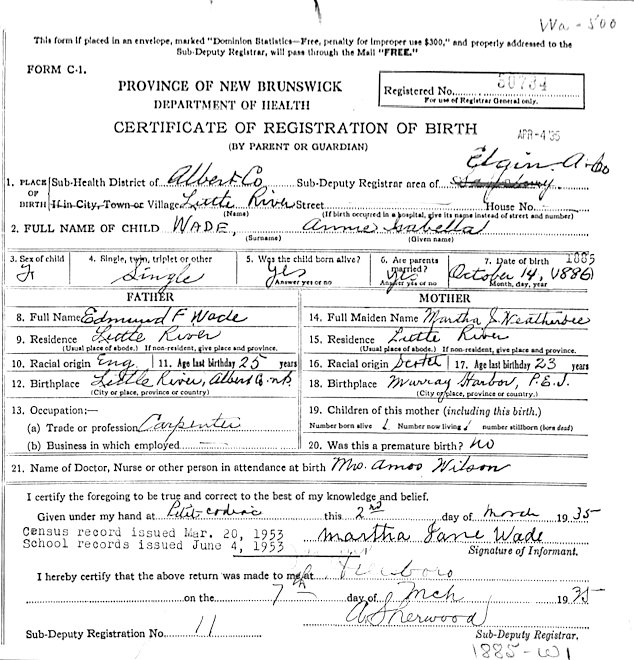 Wa-500
This form if placed in an envelope, marked "Dominion Statistics—Free, penalty for improper use $300," and properly addressed to the
Sub-Deputy Registrar, will pass through the Mail "FREE."
FORM C-1.
PROVINCE OF NEW BRUNSWICK
DEPARTMENT OF HEALTH
Registered No. 50734
For use of Registrar General only.
CERTIFICATE OF REGISTRATION OF BIRTH
APR-4'35
(BY PARENT OR GUARDIAN)
Elgin A. Co
1. PLACE OF BIRTH Sub-Health District of Albert Co Sub-Deputy Registrar area of
If in City, Town or Village Little River Street House No.
(Name) (If birth occurred in a hospital, give its name instead of street and number)
2. FULL NAME OF CHILD WADE, Annie Isabella
(Surname) (Given name)
3. Sex of child 4. Single, twin, triplet or other 5. Was the child born alive? 6. Are parents married? 7. Date of birth 1885
F Single Yes Yes October 14, (1886)
Answer yes or no Answer yes or no Month, day, year
FATHER MOTHER
8. Full Name Edmund F Wade 14. Full Maiden Name Martha J Weatherbee
9. Residence Little River 15. Residence Little River
(Usual place of abode.) If non-resident, give place and province. (Usual place of abode.) If non-resident, give place and province.
10. Racial origin Eng. 11. Age last birthday 25 years 16. Racial origin Scotch 17. Age last birthday 23 years
12. Birthplace Little River, Albert Co. N.B. 18. Birthplace Murray Harbor, P.E.I.
(City or place, province or country.) (City or place, province or country.)
13. Occupation:— 19. Children of this mother (including this birth.)
(a) Trade or profession Carpenter Number born alive 1 Number now living 1 number stillborn (born dead)
(b) Business in which employed 20. Was this a premature birth? No
21. Name of Doctor, Nurse or other person in attendance at birth Mrs. Amos Wilson
I certify the foregoing to be true and correct to the best of my knowledge and belief.
Given under my hand at Petit-codiac this 2nd day of March 1935
Census record issued Mar. 20, 1953 Martha Jane Wade
School records issued June 4, 1953 Signature of Informant.
I hereby certify that the above return was made to me at
on the 7th day of Mch 1935
A Sherwood
Sub-Deputy Registration No. 11 Sub-Deputy Registrar.
1885-W1